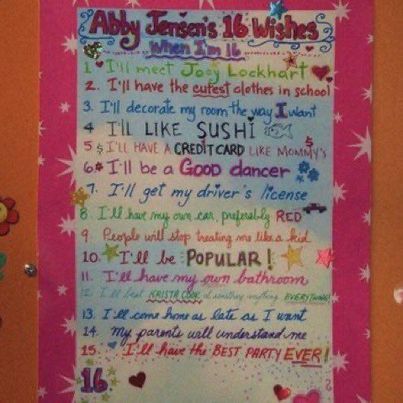 Abby Jensen's 16 Wishes
When I'm 16
1. I'll meet Joey Lockhart
2. I'll have the cutest clothes in school
3. I'll decorate my room the way I want
4 I'LL LIKE SUSHI
5 I'LL HAVE A CREDIT CARD LIKE MOMMY'S
6. I'll be a GOOD dancer
7. I'll get my driver's license
8. I'll have my own car, preferably RED
9. People will stop treating me like a kid
10. I'll be POPULAR!
11. I'll have my own bathroom
12. I'll beat KRISTA COOK at something anything EVERYTHING!
13. I'll come home as late as I want
14. My parents will understand me
15. I'll have the BEST PARTY EVER!
16